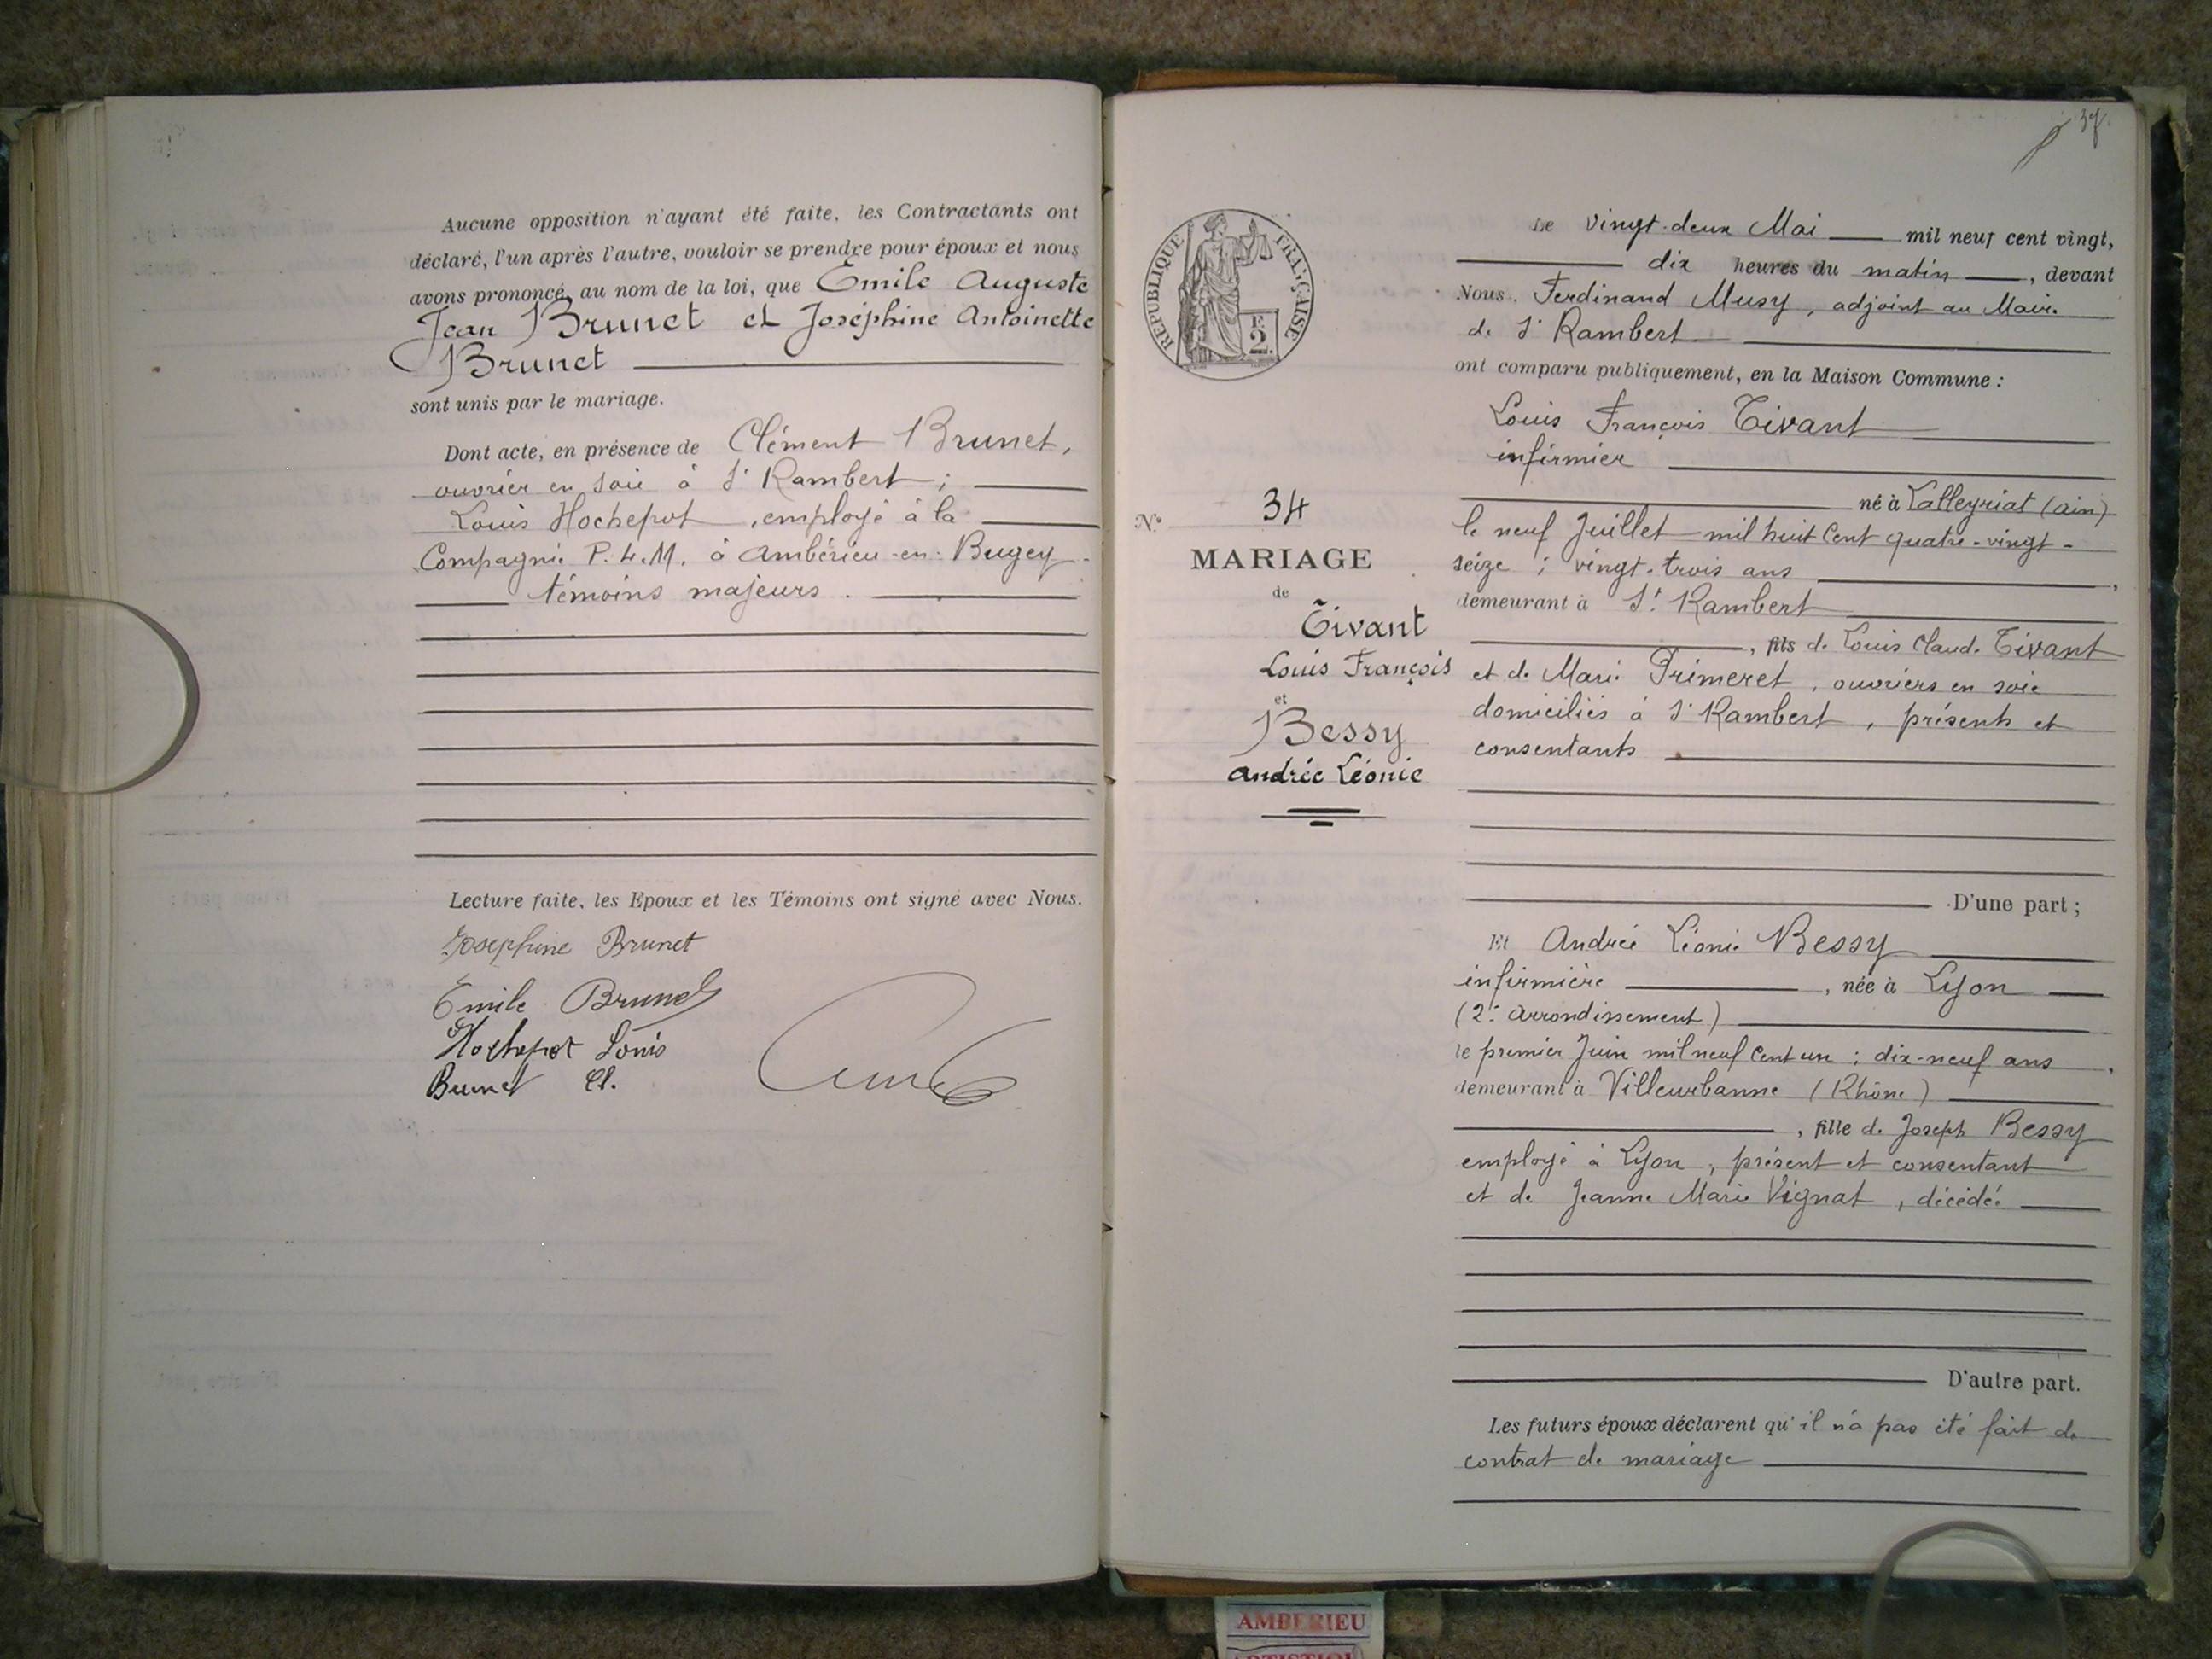 Aucune opposition n'ayant été faite, les Contractants ont
déclaré, l'un après l'autre, vouloir se prendre pour époux et nous
avons prononcé, au nom de la loi, que Emile Auguste
Jean Brunet et Joséphine Antoinette
Brunet
sont unis par le mariage.
Dont acte, en présence de Clément Brunet,
ouvrier en soie à St Rambert ;
Louis Hochepot, employé à la
Compagnie P.L.M. à Ambérieu-en-Bugey
témoins majeurs.
Lecture faite, les Epoux et les Témoins ont signé avec Nous.
Josephine Brunet
Emile Brunet
Hochepot Louis
Brunet Cl.
37
REPUBLIQUE FRANÇAISE
2
N° 34
MARIAGE
de
Tivant
Louis François
et
Bessy
Andrée Léonie
Le vingt-deux Mai mil neuf cent vingt,
dix heures du matin, devant
Nous. Ferdinand Musy, adjoint au Maire
de St Rambert
ont comparu publiquement, en la Maison Commune :
Louis François Tivant
infirmier
né à Lalleyriat (Ain)
le neuf Juillet mil huit cent quatre-vingt-
seize ; vingt-trois ans,
demeurant à St Rambert
, fils de Louis Claude Tivant
et de Marie Primeret, ouvriers en soie
domiciliés à St Rambert, présents et
consentants
D'une part ;
Et Andrée Léonie Bessy
infirmière, née à Lyon
(2e Arrondissement)
le premier Juin mil neuf cent un ; dix-neuf ans,
demeurant à Villeurbanne (Rhône)
, fille de Joseph Bessy
employé à Lyon, présent et consentant
et de Jeanne Marie Vignat, décédée
D'autre part.
Les futurs époux déclarent qu'il n'a pas été fait de
contrat de mariage
AMBERIEU